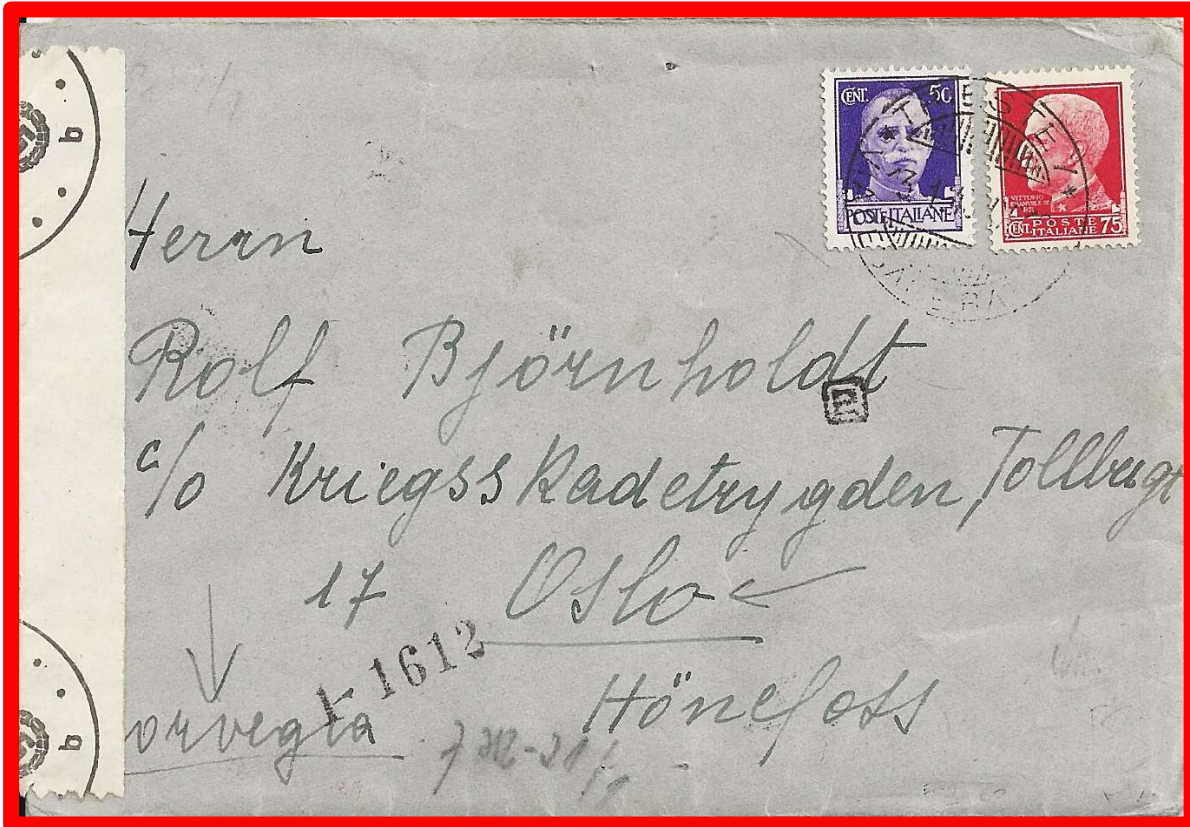 CENT. 50
POSTE ITALIANE
VITTORIO
EMANUELE III
RE
POSTE
CENT. ITALIANE 75
TRIESTE
b
Herrn
Rolf Björnholdt
c/o Kriegsskadetrygden, Tollbugt
17 Oslo
1-1612
Hönefoss
orvegia
b